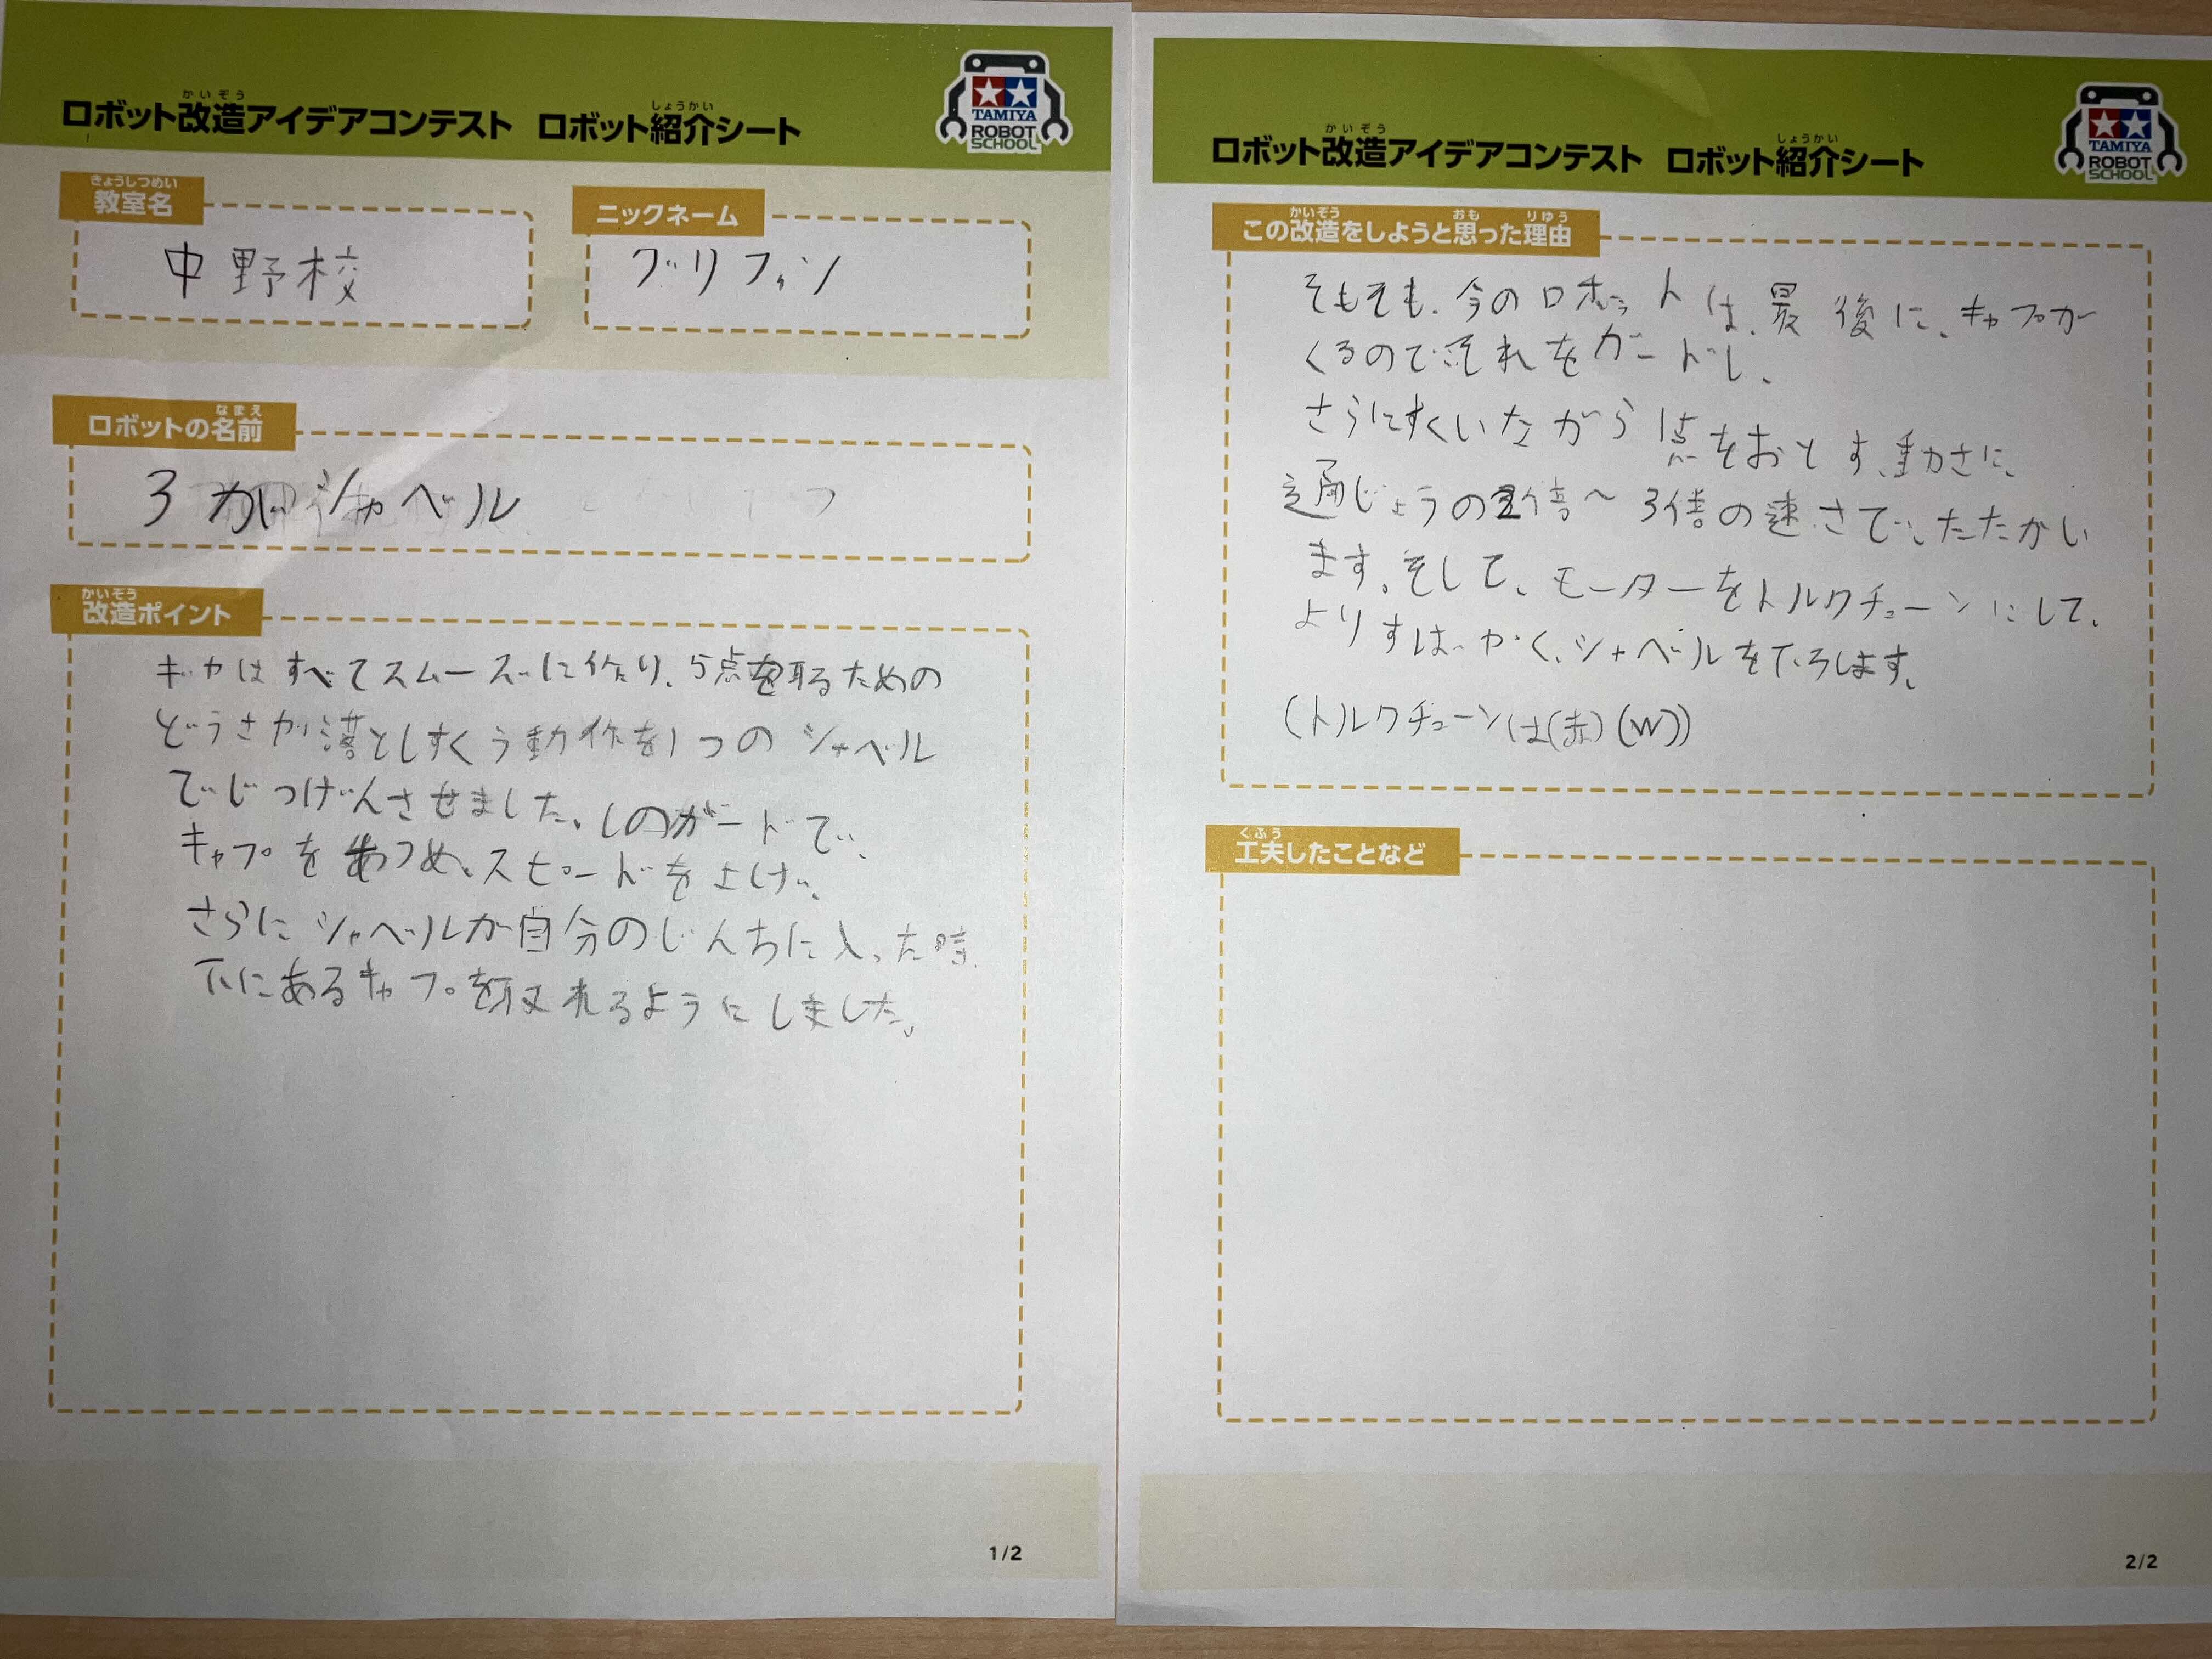 ロボット改造アイデアコンテスト ロボット紹介シート
かいぞう
しょうかい
TAMIYA
ROBOT
SCHOOL
きょうしつめい
教室名
中野校
ニックネーム
グリフィン
なまえ
ロボットの名前
シャベル
かいぞう
改造ポイント
ギヤはすべてスムーズに作り、5点を取るための
どうさが落としすくう動作を1つのシャベル
でじつげんさせました。しのガードで、
キャプを あつめ、スピードを上げ、
さらにシャベルが自分のじんちに入った時
下にあるキャプを取れるようにしました。
1/2
ロボット改造アイデアコンテスト ロボット紹介シート
かいぞう
しょうかい
TAMIYA
ROBOT
SCHOOL
かいぞう おも りゆう
この改造をしようと思った理由
そもそも、今のロボットは、最後に、キャプが
くるのでそれをガードし、
さらにすくいながら1点をおとす、動さに、
通じょうの2倍〜3倍の速さで、たたかい
ます。そして、モーターをトルクチューンにして、
よりすばやく、シャベルを下ろします。
(トルクチューンは(赤)(W))
くふう
工夫したことなど
2/2